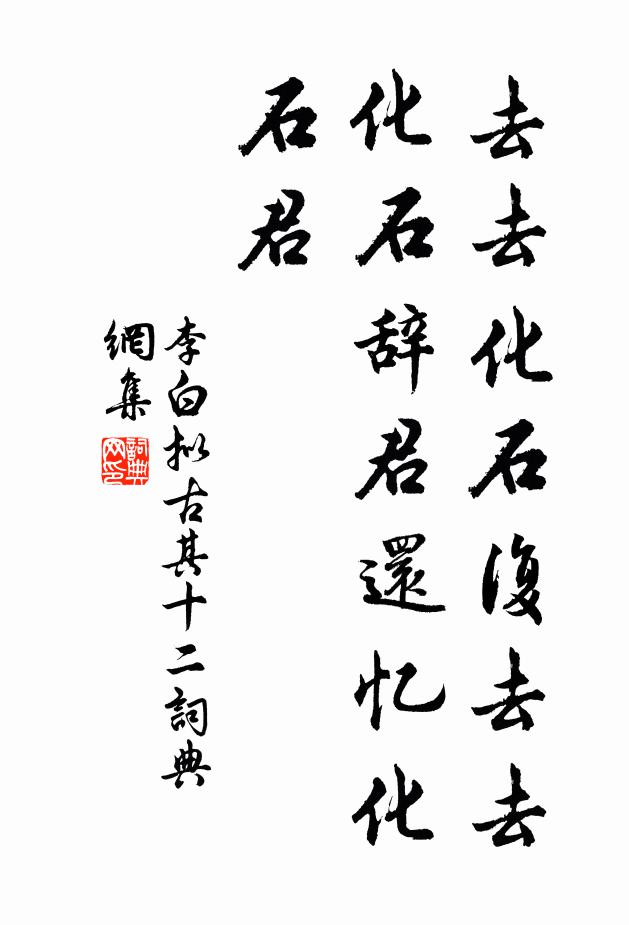 去去化石復去去
化石辞君還忆化
石君
李白拟古其十二詞典
網集
詞典网印